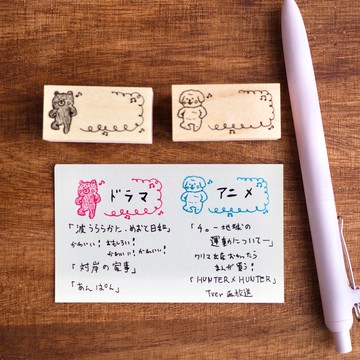 ドラマ
「波うららかに、めおと日和」
かわいい! おもしろい!
かわいい! かわいい!
「対岸の家事」
「あんぱん」
アニメ
「チ。ー地球の
運動についてー」
クリスお金おわったら
まんが買う!
「HUNTER×HUNTER」
Tver 再放送